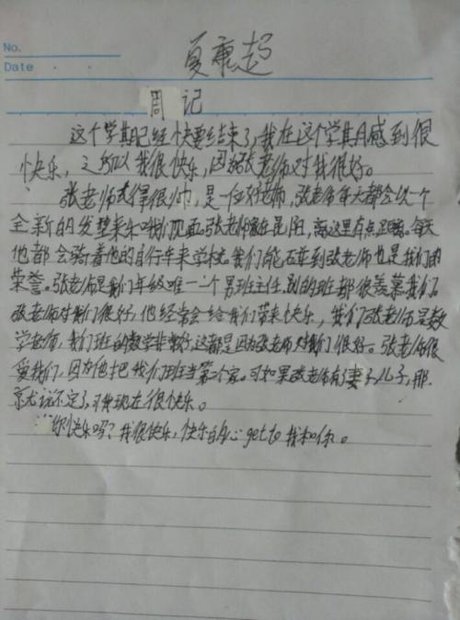 No.
Date
夏康超
周记
这个学期已经快要结束了,我在这个学期感到很
快乐,之所以我很快乐,因为张老师对我很好。
张老师长得很帅,是一位好老师,张老师每天都会以一个
全新的发型来和我们见面,张老师家在昆阳,离这里有点距离,每天
他都会骑着他的自行车来学校,我们能碰到张老师也是我们的
荣誉。张老师是我们年级唯一一个男班主任,别的班都很羡慕我们。
张老师对我们很好,他经常会给我们带来快乐,我们张老师是数
学老师,我们班的数学非常好,这都是因为张老师对我们很好。张老师很
爱我们,因为他把我们班当第二个家。可如果张老师有了妻子、儿子,那
就说不定了,不过现在很快乐。
你快乐吗?我很快乐,快乐自心get to 我和你。